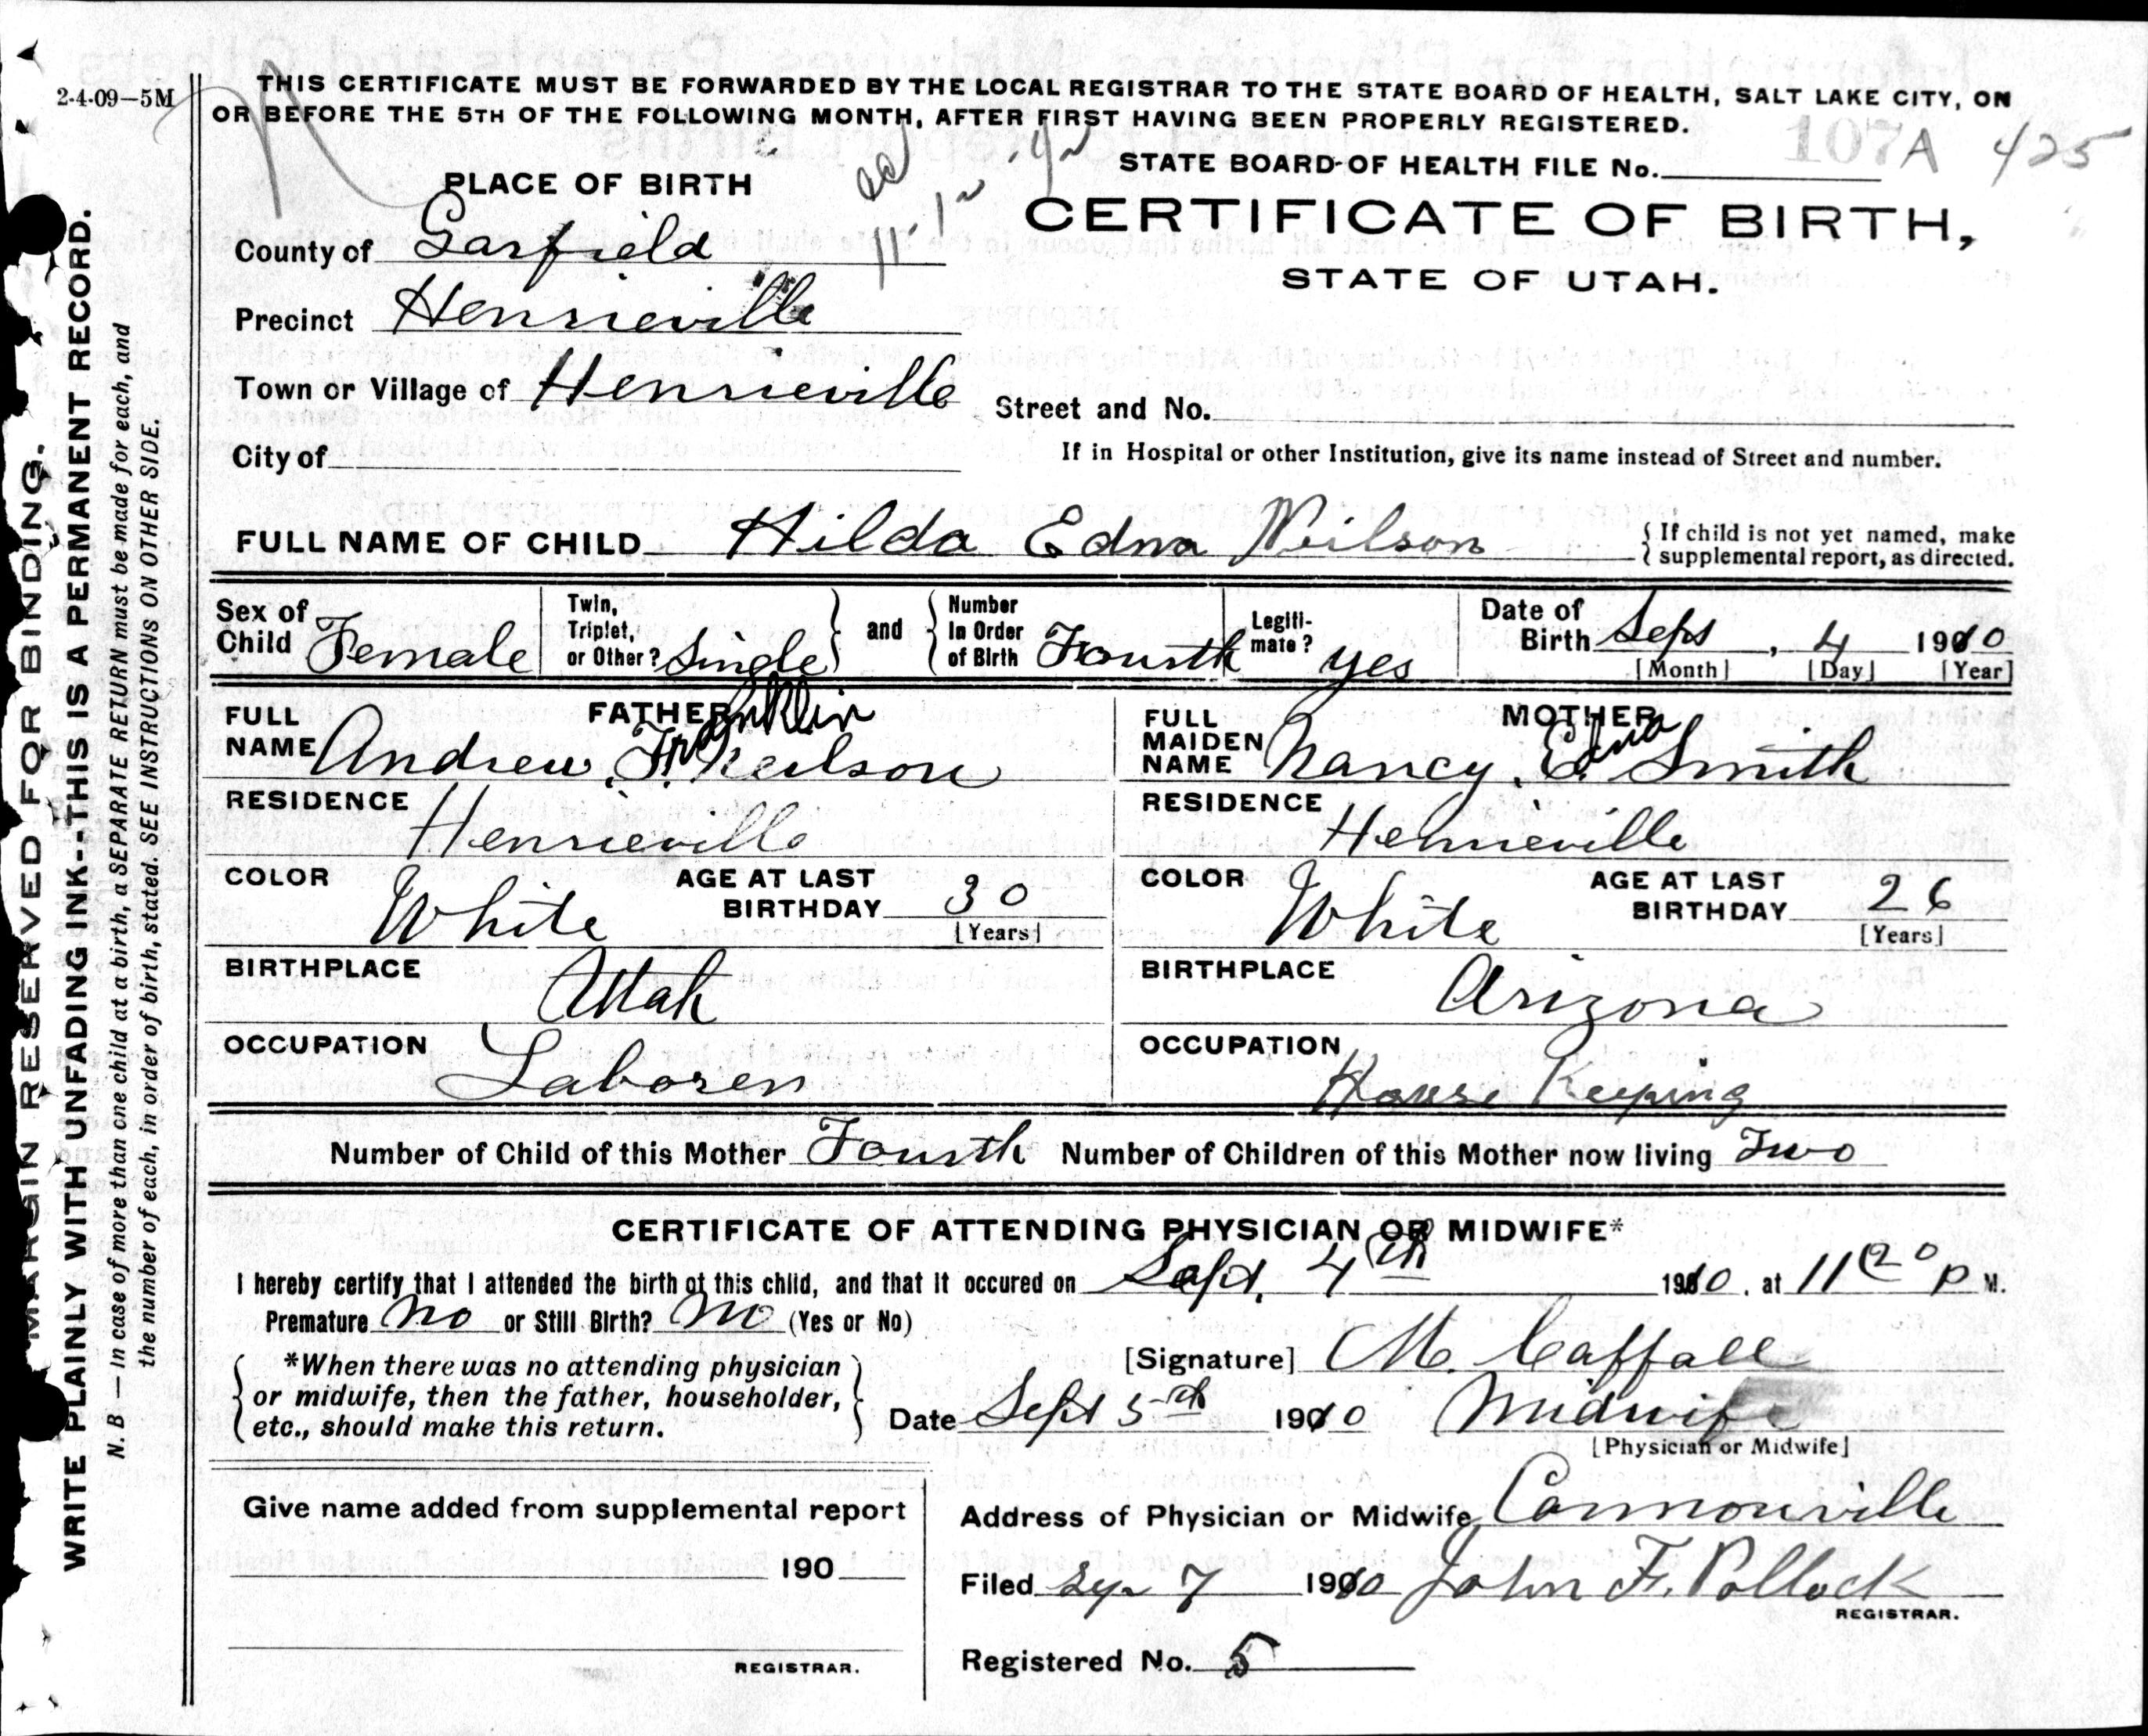 2-4-09—5M
THIS CERTIFICATE MUST BE FORWARDED BY THE LOCAL REGISTRAR TO THE STATE BOARD OF HEALTH, SALT LAKE CITY, ON
OR BEFORE THE 5TH OF THE FOLLOWING MONTH, AFTER FIRST HAVING BEEN PROPERLY REGISTERED.
107A 425
STATE BOARD OF HEALTH FILE No.
PLACE OF BIRTH
CERTIFICATE OF BIRTH,
STATE OF UTAH.
County of Garfield
Precinct Henrieville
Town or Village of Henrieville
Street and No.
City of
If in Hospital or other Institution, give its name instead of Street and number.
FULL NAME OF CHILD Hilda Edna Neilson
{ If child is not yet named, make
{ supplemental report, as directed.
Sex of Child Female
Twin, Triplet, or Other? Single } and { Number In Order of Birth Fourth
Legiti-mate? yes
Date of Birth Sept, 4 1910
[Month] [Day] [Year]
FATHER
FULL NAME Andrew F. Franklin Neilson
RESIDENCE Henrieville
COLOR White AGE AT LAST BIRTHDAY 30
[Years]
BIRTHPLACE Utah
OCCUPATION Laborer
MOTHER
FULL MAIDEN NAME Nancy E. Edna Smith
RESIDENCE Henrieville
COLOR White AGE AT LAST BIRTHDAY 26
[Years]
BIRTHPLACE Arizona
OCCUPATION House Keeping
Number of Child of this Mother Fourth Number of Children of this Mother now living Two
CERTIFICATE OF ATTENDING PHYSICIAN OR MIDWIFE*
I hereby certify that I attended the birth of this child, and that it occured on Sept. 4th 1910, at 11 20 P M.
Premature No or Still Birth? No (Yes or No)
*When there was no attending physician
or midwife, then the father, householder,
etc., should make this return.
[Signature] M. Caffall
Date Sept 5th 1910 Midwife
[Physician or Midwife]
Give name added from supplemental report
190
REGISTRAR.
Address of Physician or Midwife Cannonville
Filed Sep 7 1910 John F. Pollock
REGISTRAR.
Registered No. 5
MARGIN RESERVED FOR BINDING.
WRITE PLAINLY WITH UNFADING INK--THIS IS A PERMANENT RECORD.
N. B — In case of more than one child at a birth, a SEPARATE RETURN must be made for each, and
the number of each, in order of birth, stated. SEE INSTRUCTIONS ON OTHER SIDE.